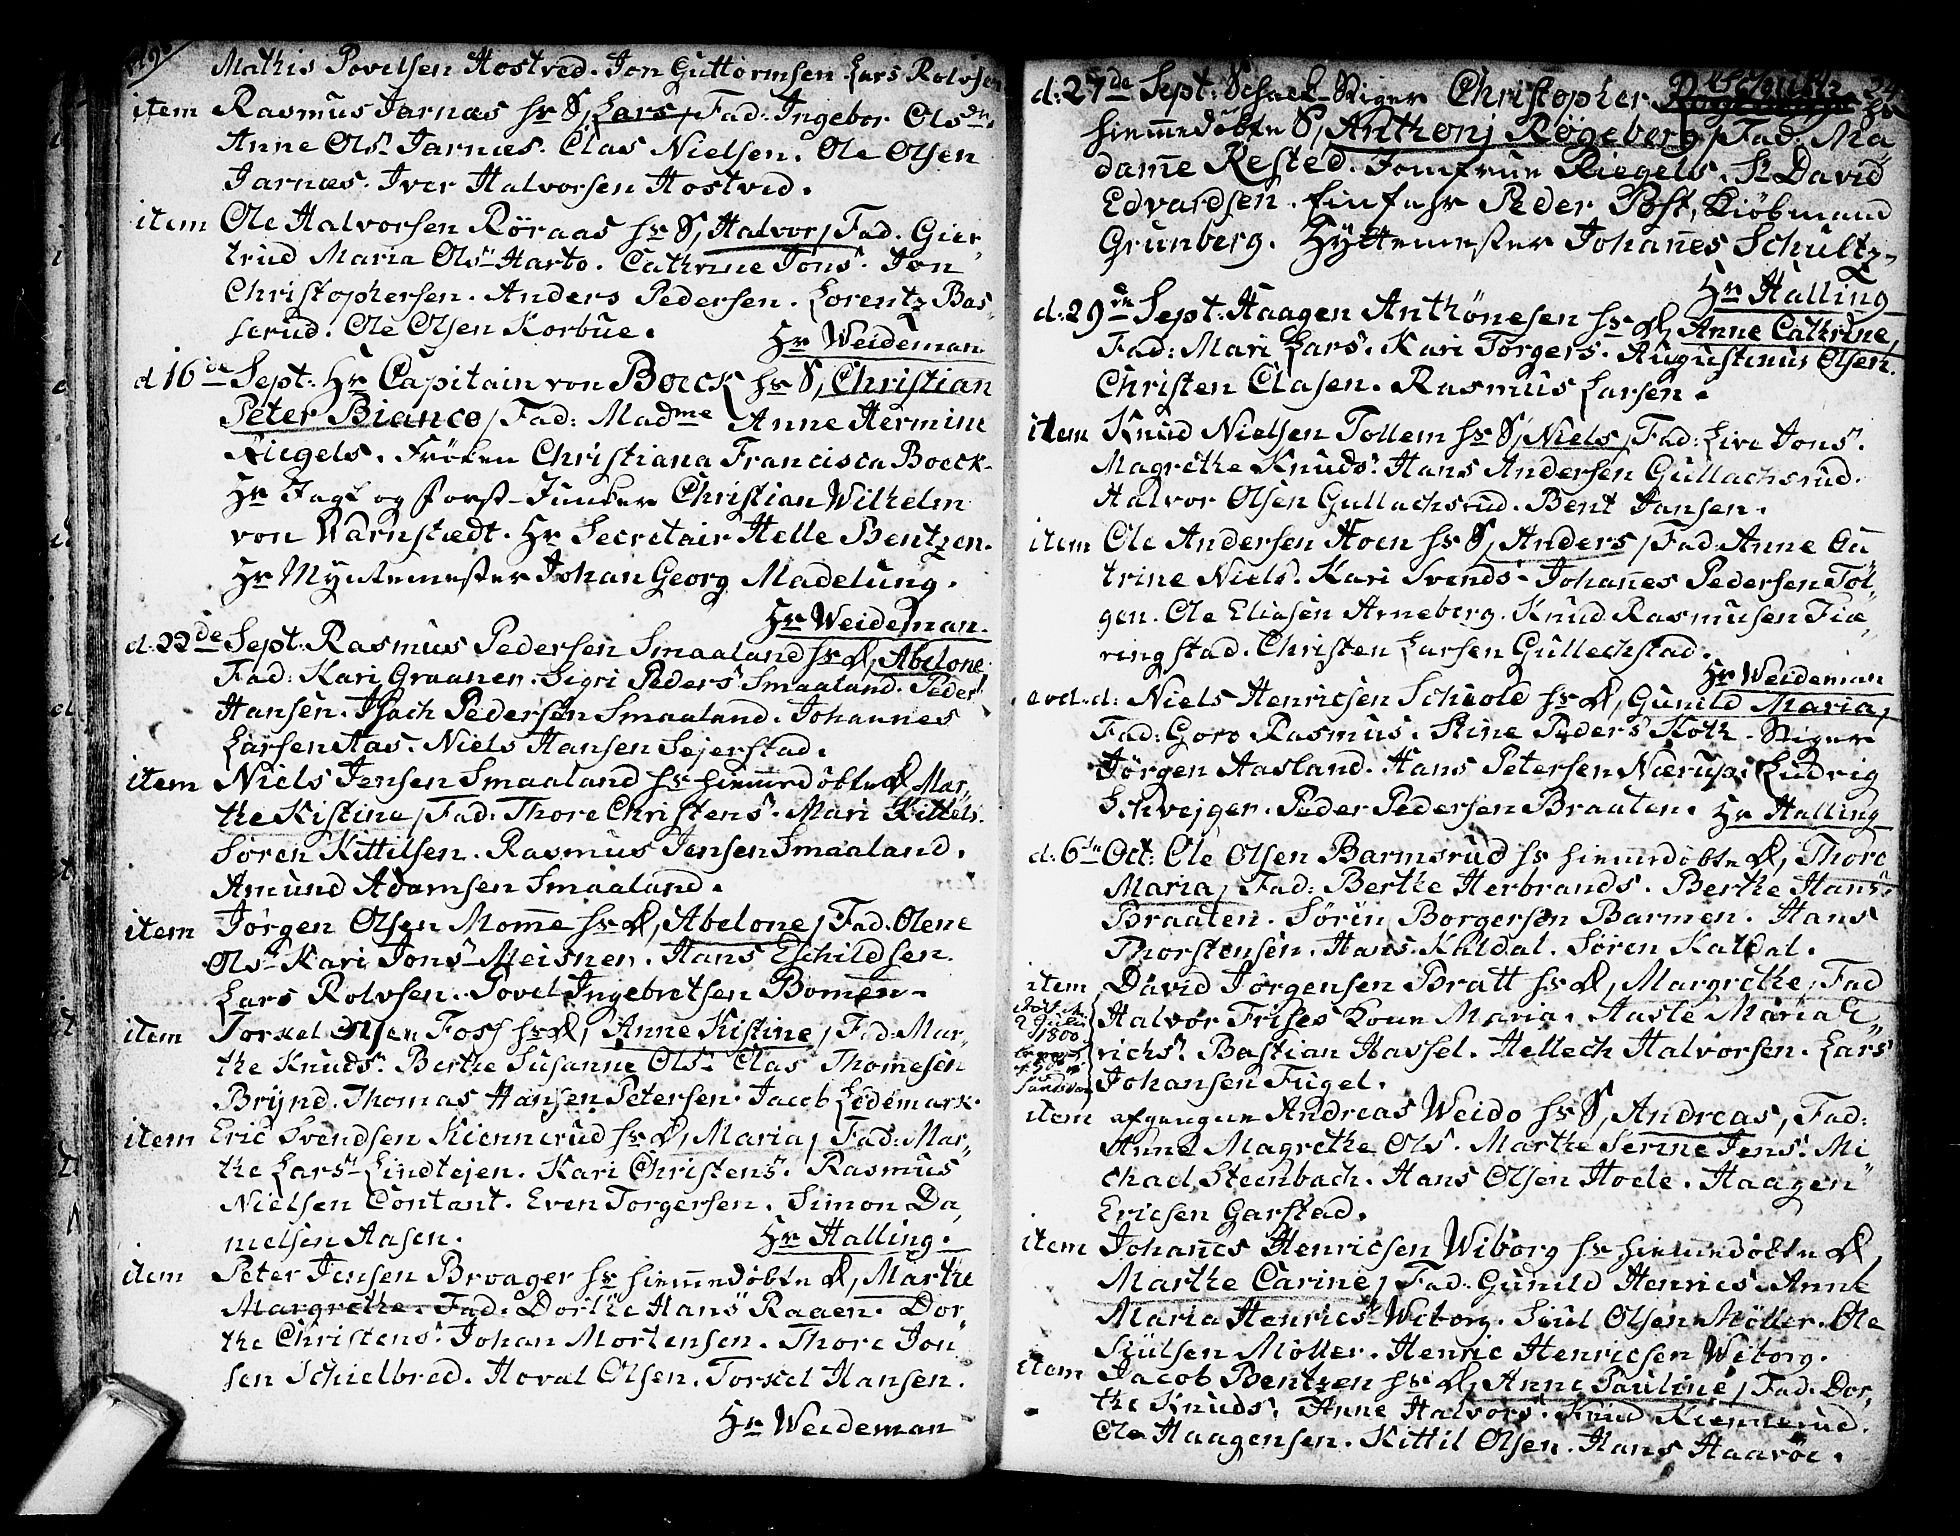 Mathis Povelsen Hostved. Jon Guttormsen Lars Rolvsen
item Rasmus Jarnæs hs S, Lars, Fad: Ingebor Olsdr.
Anne Ols Jarnæs. Clas Nielsen. Ole Olsen
Jarnæs. Iver Halvorsen Hostved.
item Ole Halvorsen Röraas hs S, Halvor, Fad. Gier
trud Maria Ols Harto. Cathrine Jons. Jon
Christophersen. Anders Pedersen. Lorentz Bas
serud. Ole Olsen Korbue.
Hr Weideman
d 16de Sept: Hr Capitain von Boeck hs S, Christian
Peter Bianco, Fad: Madme Anne Hermine
Riegels. Fröken Christiana Francisca Boeck.
Hr Jagt og forst-Junker Christian Wilhelm
von Warnstædt. Hr Secretair Helle Bentzen.
Hr Myntemester Johan Georg Madelung.
Hr Weideman.
d: 22de Sept: Rasmus Pedersen Smaaland hs D, Abelone,
Fad: Kari Graaner. Sigri Peders Smaaland. Peder
Hansen. Isach Pedersen Smaaland. Johannes
Larsen Aas. Niels Hansen Sejerstad.
item Niels Jensen Smaaland hs hiemmedöbte D, Mar,
the Kistine, Fad: Thore Christens. Mari Kittels.
Sören Kittilsen. Rasmus Jensen Smaaland.
Amund Adamsen Smaaland.
item Jörgen Olsen Momme hs D, Abelone, Fad. Olene
Ols. Kari Jons Meisner. Hans Eschildsen.
Lars Rolvsen. Povel Ingebretsen Bomen.
item Torkel Olsen Foss hs D, Anne Kistine, Fad: Mar
the Knuds. Berthe Susanne Ols. Clas Thomesen
Brÿnd. Thomas Hansen Petersen. Jacob Ledemark.
item Eric Svendsen Kiennerud hs D, Maria, Fad: Mar
the Lars Lindtejen. Kari Christens. Rasmus
Nielsen Contant. Even Torgersen. Simon Da
nielsen Aasen.
Hr Halling.
item Peter Jensen Broager hs hiemmedöbte D, Marthe
Margrethe. Fad. Dorthe Hans Raaen. Dor
the Christens. Johan Mortensen. Thore Jon
sen Schielbred. Hoval Olsen. Torkel Hansen.
Hr Weideman
d: 27de Sept: Schack-Stiger Christopher hs
hiemmedöbte S, Anthonj Rögeberg, Fad: Ma
damme Rested. Jomfrue Riegels. Sr David
Edvardsen. Einfahr Peder Post, Kiöbmand
Grunberg. Hÿttemester Johannes Schultz.
Hr Halling
d: 29de Sept: Haagen Anthönesen hs D, Anne Cathrine,
Fad: Mari Lars. Kari Torgers. Augustinus Olsen.
Christen Clasen. Rasmus Larsen.
item Knud Nielsen Tollem hs S, Niels, Fad: Live Jons.
Magrethe Knuds. Hans Andersen Gullachsrud.
Halvor Olsen Gullachsrud. Bent Jansen.
item Ole Andersen Hoen hs S, Anders, Fad: Anne Ca
trine Niels. Kari Svends. Johannes Pedersen Tol
gen. Ole Eliasen Arneberg. Knud Rasmusen Fiæ
ringstad. Christen Larsen Gullechstad.
Hr Weideman
eod. d: Niels Henricsen Schiold hs D, Gunild Maria,
Fad: Goro Rasmus. Stine Peders Koth. Stiger
Jörgen Aasland. Hans Petersen Nærup. Ludvig
Schvejger. Peder Pedersen Braaten. Hr Halling
d: 6te Oct: Ole Olsen Barmsrud hs hiemmedöbte D, Thore
Maria, Fad: Berthe Herbrands. Berthe Hans
Braaten. Sören Borgersen Barmen. Hans
Thorstensen. Hans Kaldal. Sören Kaldal.
item David Jörgensen Bratt hs D, Margrethe, Fad
Halvor Frises Kone Maria. Aaste Maria E
richs. Bastian Hassel. Hellech Halvorsen. Lars
Johansen Fugel.
item afgangne Andreas Weido hs S, Andreas, Fad:
Anne Magrethe Ols. Marthe Serine Jens. Mi
chael Steenbach. Hans Olsen Hoele. Haagen
Ericsen Garstad.
item Johannes Henricsen Wiborg hs hiemmedöbte D,
Marthe Carine, Fad: Gunild Henrics. Anne
Maria Henrics Wiborg. Siul Olsen Möller. Ole
Siulsen Möller. Henric Henricsen Wiborg.
item Jacob Bentzen hs D, Anne Pauline, Fad: Dor,
the Knuds. Anne Halvors. Knud Kiennerud.
Ole Haagensen. Kittil Olsen. Hans Haavöe.